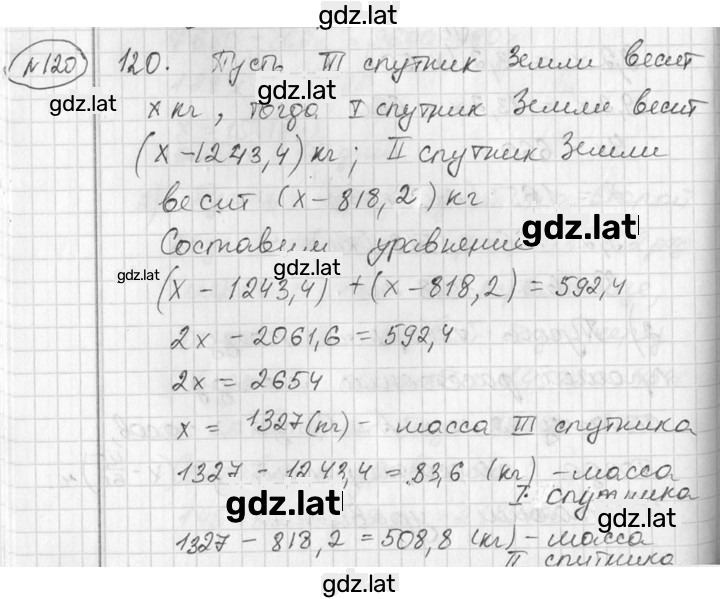 gdz.lat
№120 120. Пусть III спутник Земли весит
gdz.lat
gdz.lat
x кг, тогда I спутник Земли весит
(x-1243,4) кг; II спутник Земли
весит (x-818,2) кг
gdz.lat
Составим уравнение
gdz.lat
gdz.lat
(x - 1243,4) + (x - 818,2) = 592,4
2x - 2061,6 = 592,4
2x = 2654
x = 1327 (кг) - масса III спутника
1327 - 1243,4 = 83,6 (кг) - масса
I спутника
gdz.lat
gdz.lat
1327 - 818,2 = 508,8 (кг) - масса
II спутника
gdz.lat